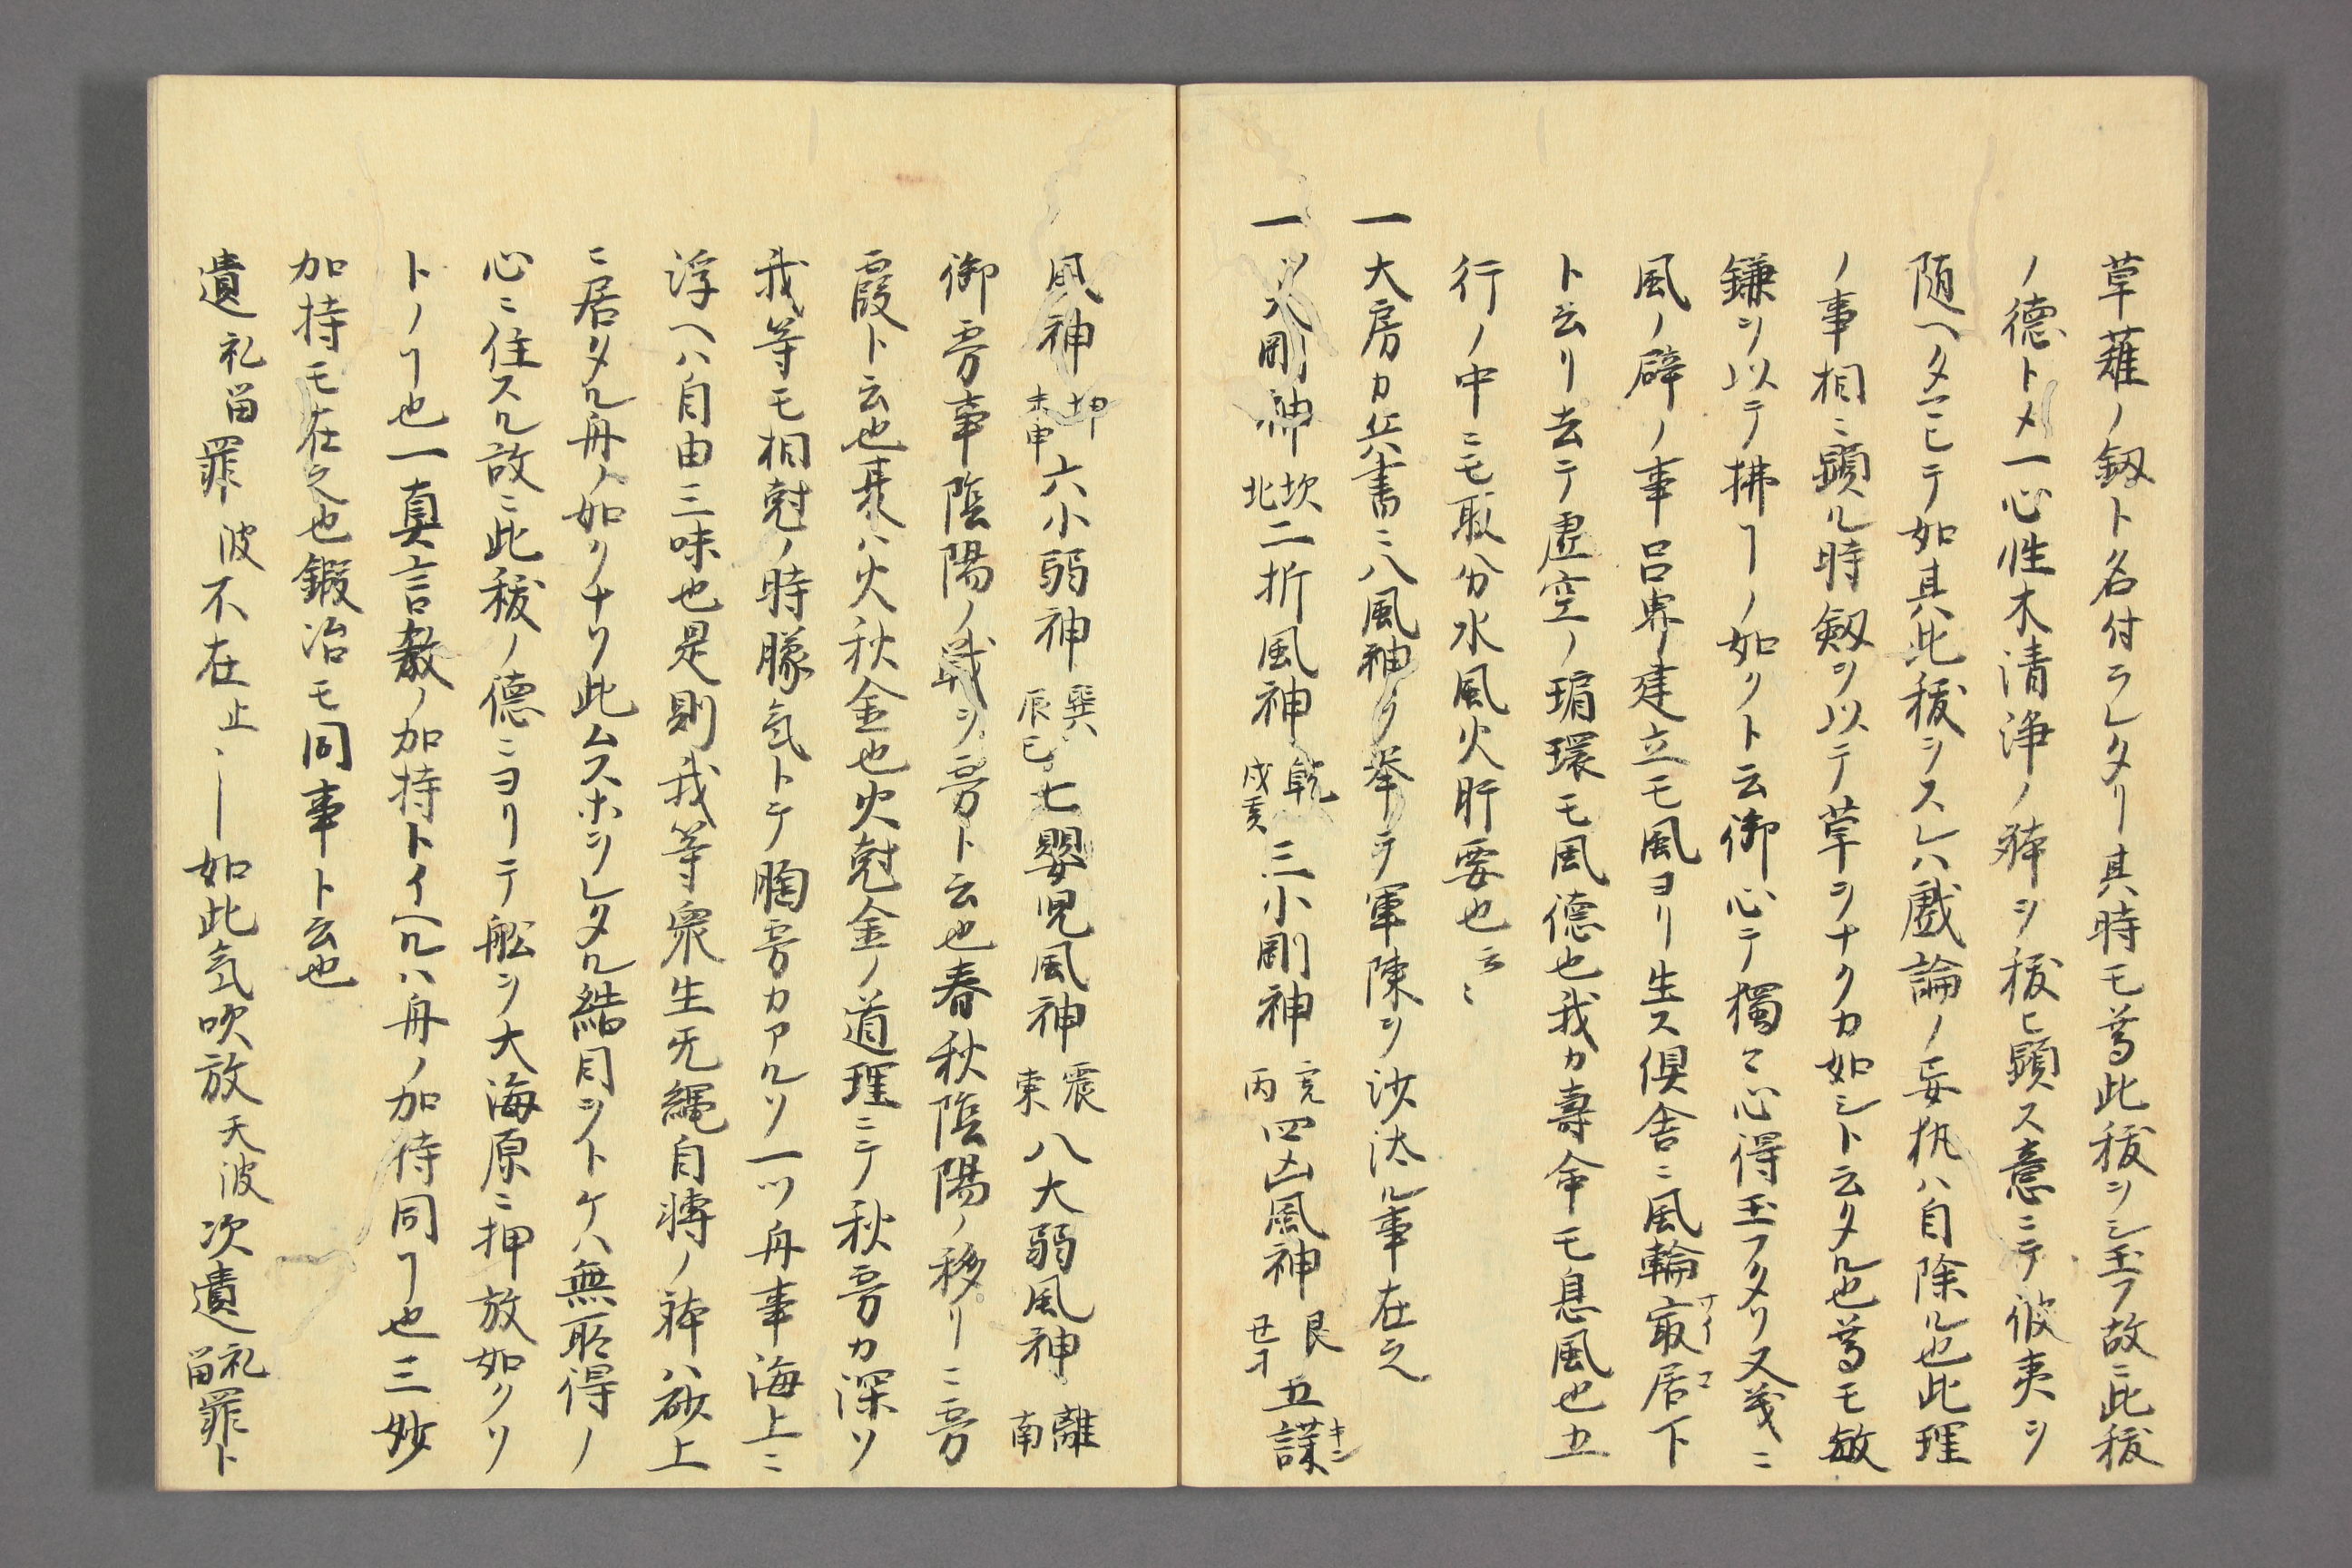 草薙ノ釼ト名付ラレタリ其時モ尊此秡ヲシ玉フ故ニ此秡
ノ德トメ一心性木清浄ノ躰ヲ秡ヒ顕ス意ニテ彼夷ヲ
随ヘタマヒテ如其此秡ヲスレハ戯論ノ妄執ハ自除ル也此理
ノ事相ニ顕ル時釼ヲ以テ草ヲナクカ如シト云タル也尊モ敏
鎌ヲ以テ拂フノ如クト云御心テ獨リ心得玉フタリ又義ニ
風ノ辟ノ事呂界建立モ風ヨリ生ス倶舎ニ風輪冣居下
ト云リ去テ虚空ノ瑚環モ風德也我カ壽命モ息風也五
行ノ中ニモ取分水風火肝要也云〻
一大房カ兵書ニ八風神ヲ挙ラ軍陳ヲ沙汰ル事在之
一ツ大剛神坎北二折風神乾戌亥三小剛神兌丙四凶風神艮丑寸五謀
風神坤未申六小弱神巽辰巳七嬰児風神震東八大弱風神離南
御霧事陰陽ノ戦ヲ霧ト云也春秋陰陽ノ移リニ霧
霞ト云也其ハ火秋金也火尅金ノ道理ニテ秋霧カ深ソ
我等モ相尅ノ時朦気トテ胸霧カアルソ一ツ舟事海上ニ
浮ヘハ自由三昧也是則我等衆生旡縄自縛ノ躰ハ磯上
ニ居タル舟ノ如クナリ此ムスホヲレタル結目ヲトケハ無所得ノ
心ニ住スル故ニ此秡ノ德ニヨリテ舩ヲ大海原ニ押放如クソ
トノ丁也一真言教ノ加持トイヘルハ舟ノ加持同丁也三妙
加持モ在之也鍛冶モ同事ト云也
遺礼留罪波不在止〻―如此気吹放天波次遺礼留罪ト